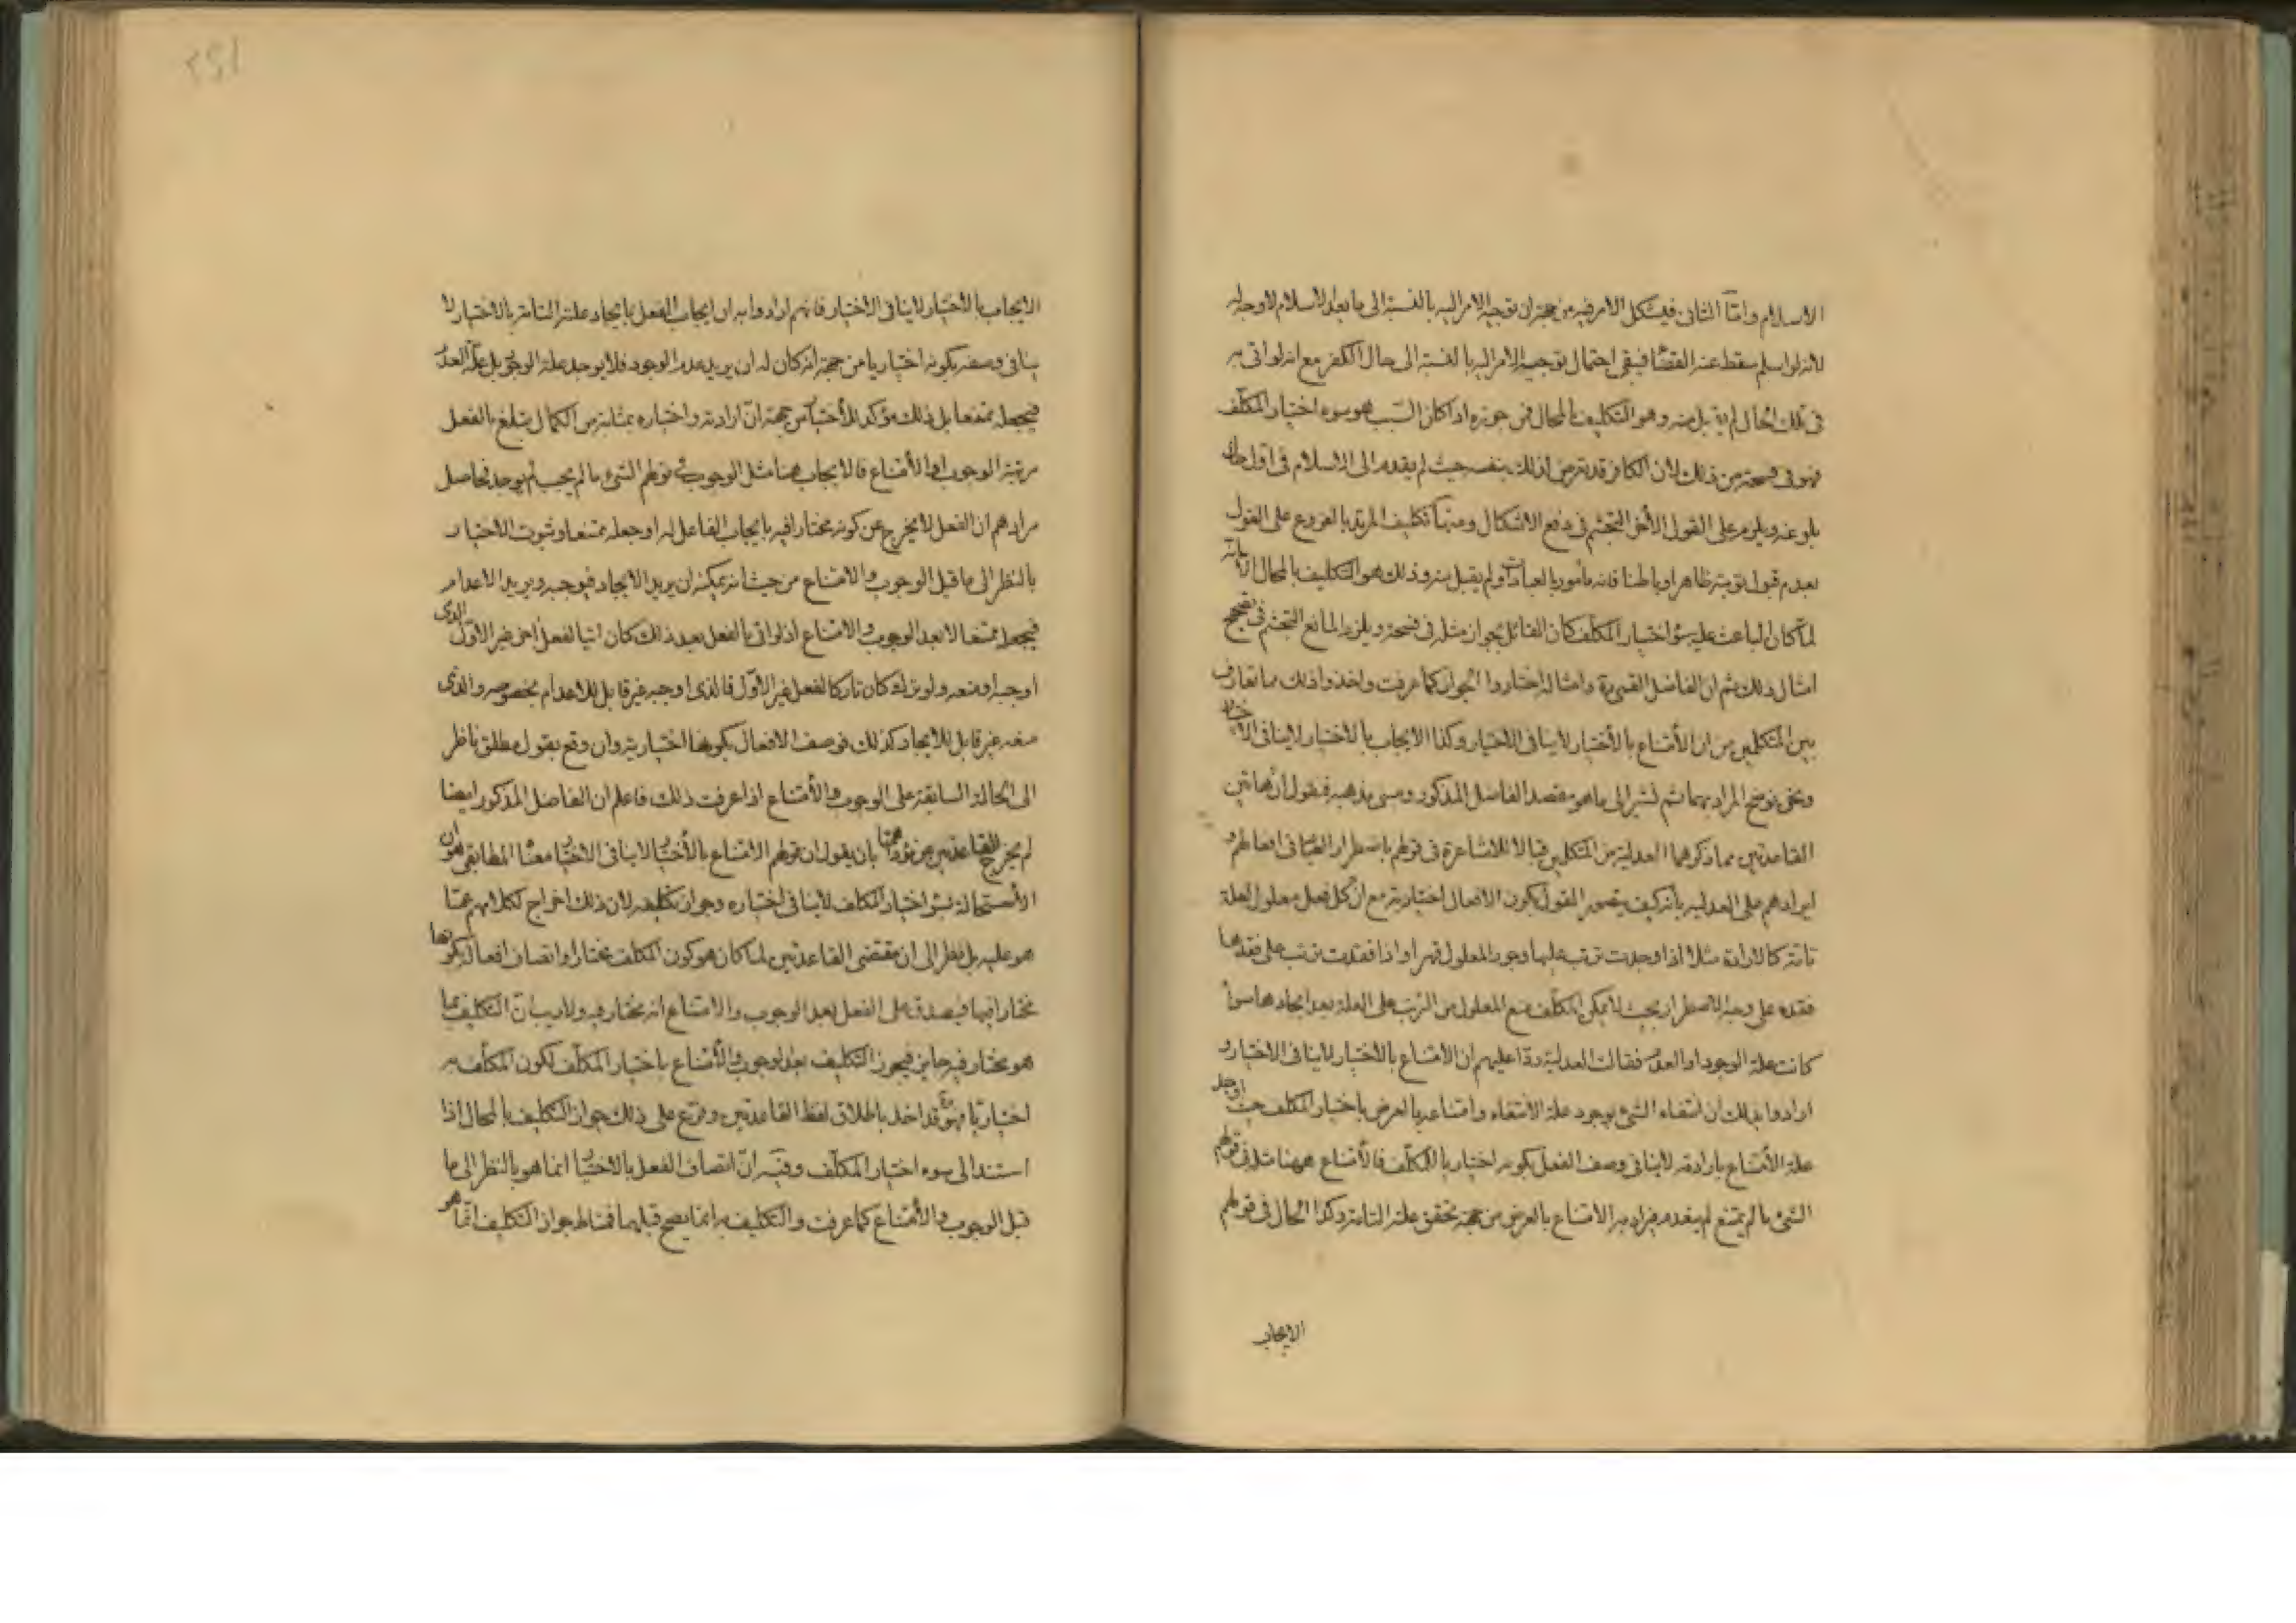 الاسلام وامّا الثانى فيشكل الامر فيه من جهة ان توجيه الامر اليه بالنسبة الى ما بعد الاسلام لا وجه له
لانه لو اسلم سقط عنه القضاء فيبقى احتمال توجيه الامر اليه بالنسبة الى حال الكفر مع انه لو اتى به
فى تلك الحال لم يقبل منه وهو التكليف بالمحال فمن جوزه اذا كان السّبب هو سوء اختيار المكلّف
فهو فى فسحة من ذلك لان الكافر قد تعرض لذلك بنفسه حيث لم يقدم الى الاسلام فى اوّل حال
بلوغه ويلزم على القول الأخر التجشم فى دفع الاشكال ومنها تكليف المرتد بالفروع على القول
بعدم قبول توبته ظاهرا وباطنا فانه مأمور بالعبادات ولم يقبل منه وذلك هو التكليف بالمحال الّا انّه
لمّا كان الباعث عليه سوء اختيار المكلّف كان القائل بجواز مثله فى فسحة ويلزم المانع التجشم فى تصحيح
امثال ذلك ثم ان الفاضل القمى ره وامثاله اختاروا الجواز كما عرفت واخذوا ذلك مما تعارف
بين المتكلمين من ان الأمتناع بالأختيار لا ينافى الاختيار وكذا الايجاب بالاختيار لا ينافى الاختيار
ونحن نوضح المراد بهما ثم نشير الى ما هو مقصد الفاضل المذكور ومبنى مذهبه فنقول ان هاتين
القاعدتين مما ذكرهما العدلية من المتكلمين قبالا للاشاعرة فى قولهم باضطرار العباد فى افعالهم و
ايرادهم على العدلية بأنه كيف يتصور القول بكون الافعال اختيارية مع ان كل فعل معلول لعلة
تامة كالارادة مثلا اذا وجدت ترتب عليها وجود المعلول قهرا واذا فقدت ترتب على فقدها
فقده على وجه الاضطرار بحيث لا يمكن المكلّف منع المعلول من الترتب على العلة بعد ايجادها سواء
كانت علة الوجود او العدم فقالت العدلية ردّا عليهم ان الامتناع بالاختيار لا ينافى الاختيار و
ارادوا بذلك ان انتفاء الشئ بوجود علة الانتفاء وامتناعه بالعرض باختيار المكلف حيث اوجد
علة الأمتناع بارادته لا ينافى وصف الفعل بكونه اختياريا للمكلّف فالأمتناع ههنا مثله فى قولهم
الشئ ما لم يمتنع لم ينعدم فيراد به الامتناع بالعرض من جهة تحقق علته التامة وكذا الحال فى قولهم
الايجاب
الايجاب بالاختيار لا ينافى الاختيار فانهم ارادوا به ان ايجاب الفعل بايجاد علته التامة بالاختيار لا
ينافى وصفه بكونه اختياريا من جهة انه كان له ان يريد عدم الوجود فلا يوجد علة الوجود بل علّة العدم
فيجعله ممتنعا بل ذلك مؤكد للأختيار من جهة انّ ارادته واختياره بمثابة من الكمال يبلغ بالفعل
مرتبة الوجوب او الأمتناع فالايجاب هنا مثل الوجوب فى قولهم الشئ ما لم يجب لم يوجد فحاصل
مرادهم ان الفعل لا يخرج عن كونه مختارا فيه بايجاب الفاعل له او جعله ممتنعا وثبوت الاختيار
بالنظر الى ما قبل الوجوب والامتناع من حيث انه يمكنه ان يريد الايجاد فيوجبه ويريد الاعدام
فيجعله ممتنعا لا بعد الوجوب والامتناع اذ لو اتى بالفعل بعد ذلك كان اتيا لفعل اخر غير الاوّل الذى
اوجبه او منعه ولو تركه كان تاركا لفعل غير الاوّل فالذى اوجبه غير قابل للاعدام بخصوصه والذى
منعه غير قابل للايجاد كذلك فوصف الافعال بكونها اختيارية وان وقع بقول مطلق ناظر
الى الحالة السابقة على الوجوب والأمتناع اذا عرفت ذلك فاعلم ان الفاضل المذكور ايضا
لم يخرج القاعدتين عن مؤداهما بان يقول ان قولهم الامتناع بالأختيار لا ينافى الاختيار معناه المطابقى هو ان
الأستحالة بسوء اختيار المكلف لا ينافى اختياره وجواز تكليفه لان ذلك اخراج لكلامهم عمّا
هو عليه بل نظر الى ان مقتضى القاعدتين لما كان هو كون المكلف مختارا واتصاف افعاله بكونها
مختارا فيها فيصدق على الفعل بعد الوجوب والامتناع انه مختار فيه ولا ريب انّ التكليف بما
هو مختار فيه جايز فيجوز التكليف بعد الوجوب والأمتناع باختيار المكلّف لكون المكلّف به
اختياريّا فهو ره قد اخذ باطلاق لفظ القاعدتين وفرّع على ذلك جواز التكليف بالمحال اذا
استند الى سوء اختيار المكلّف وفيه انّ اتصاف الفعل بالاختيار انما هو بالنظر الى ما
قبل الوجوب والأمتناع كما عرفت والتكليف به انما يصح قبلهما فمناط جواز التكليف انّما هو